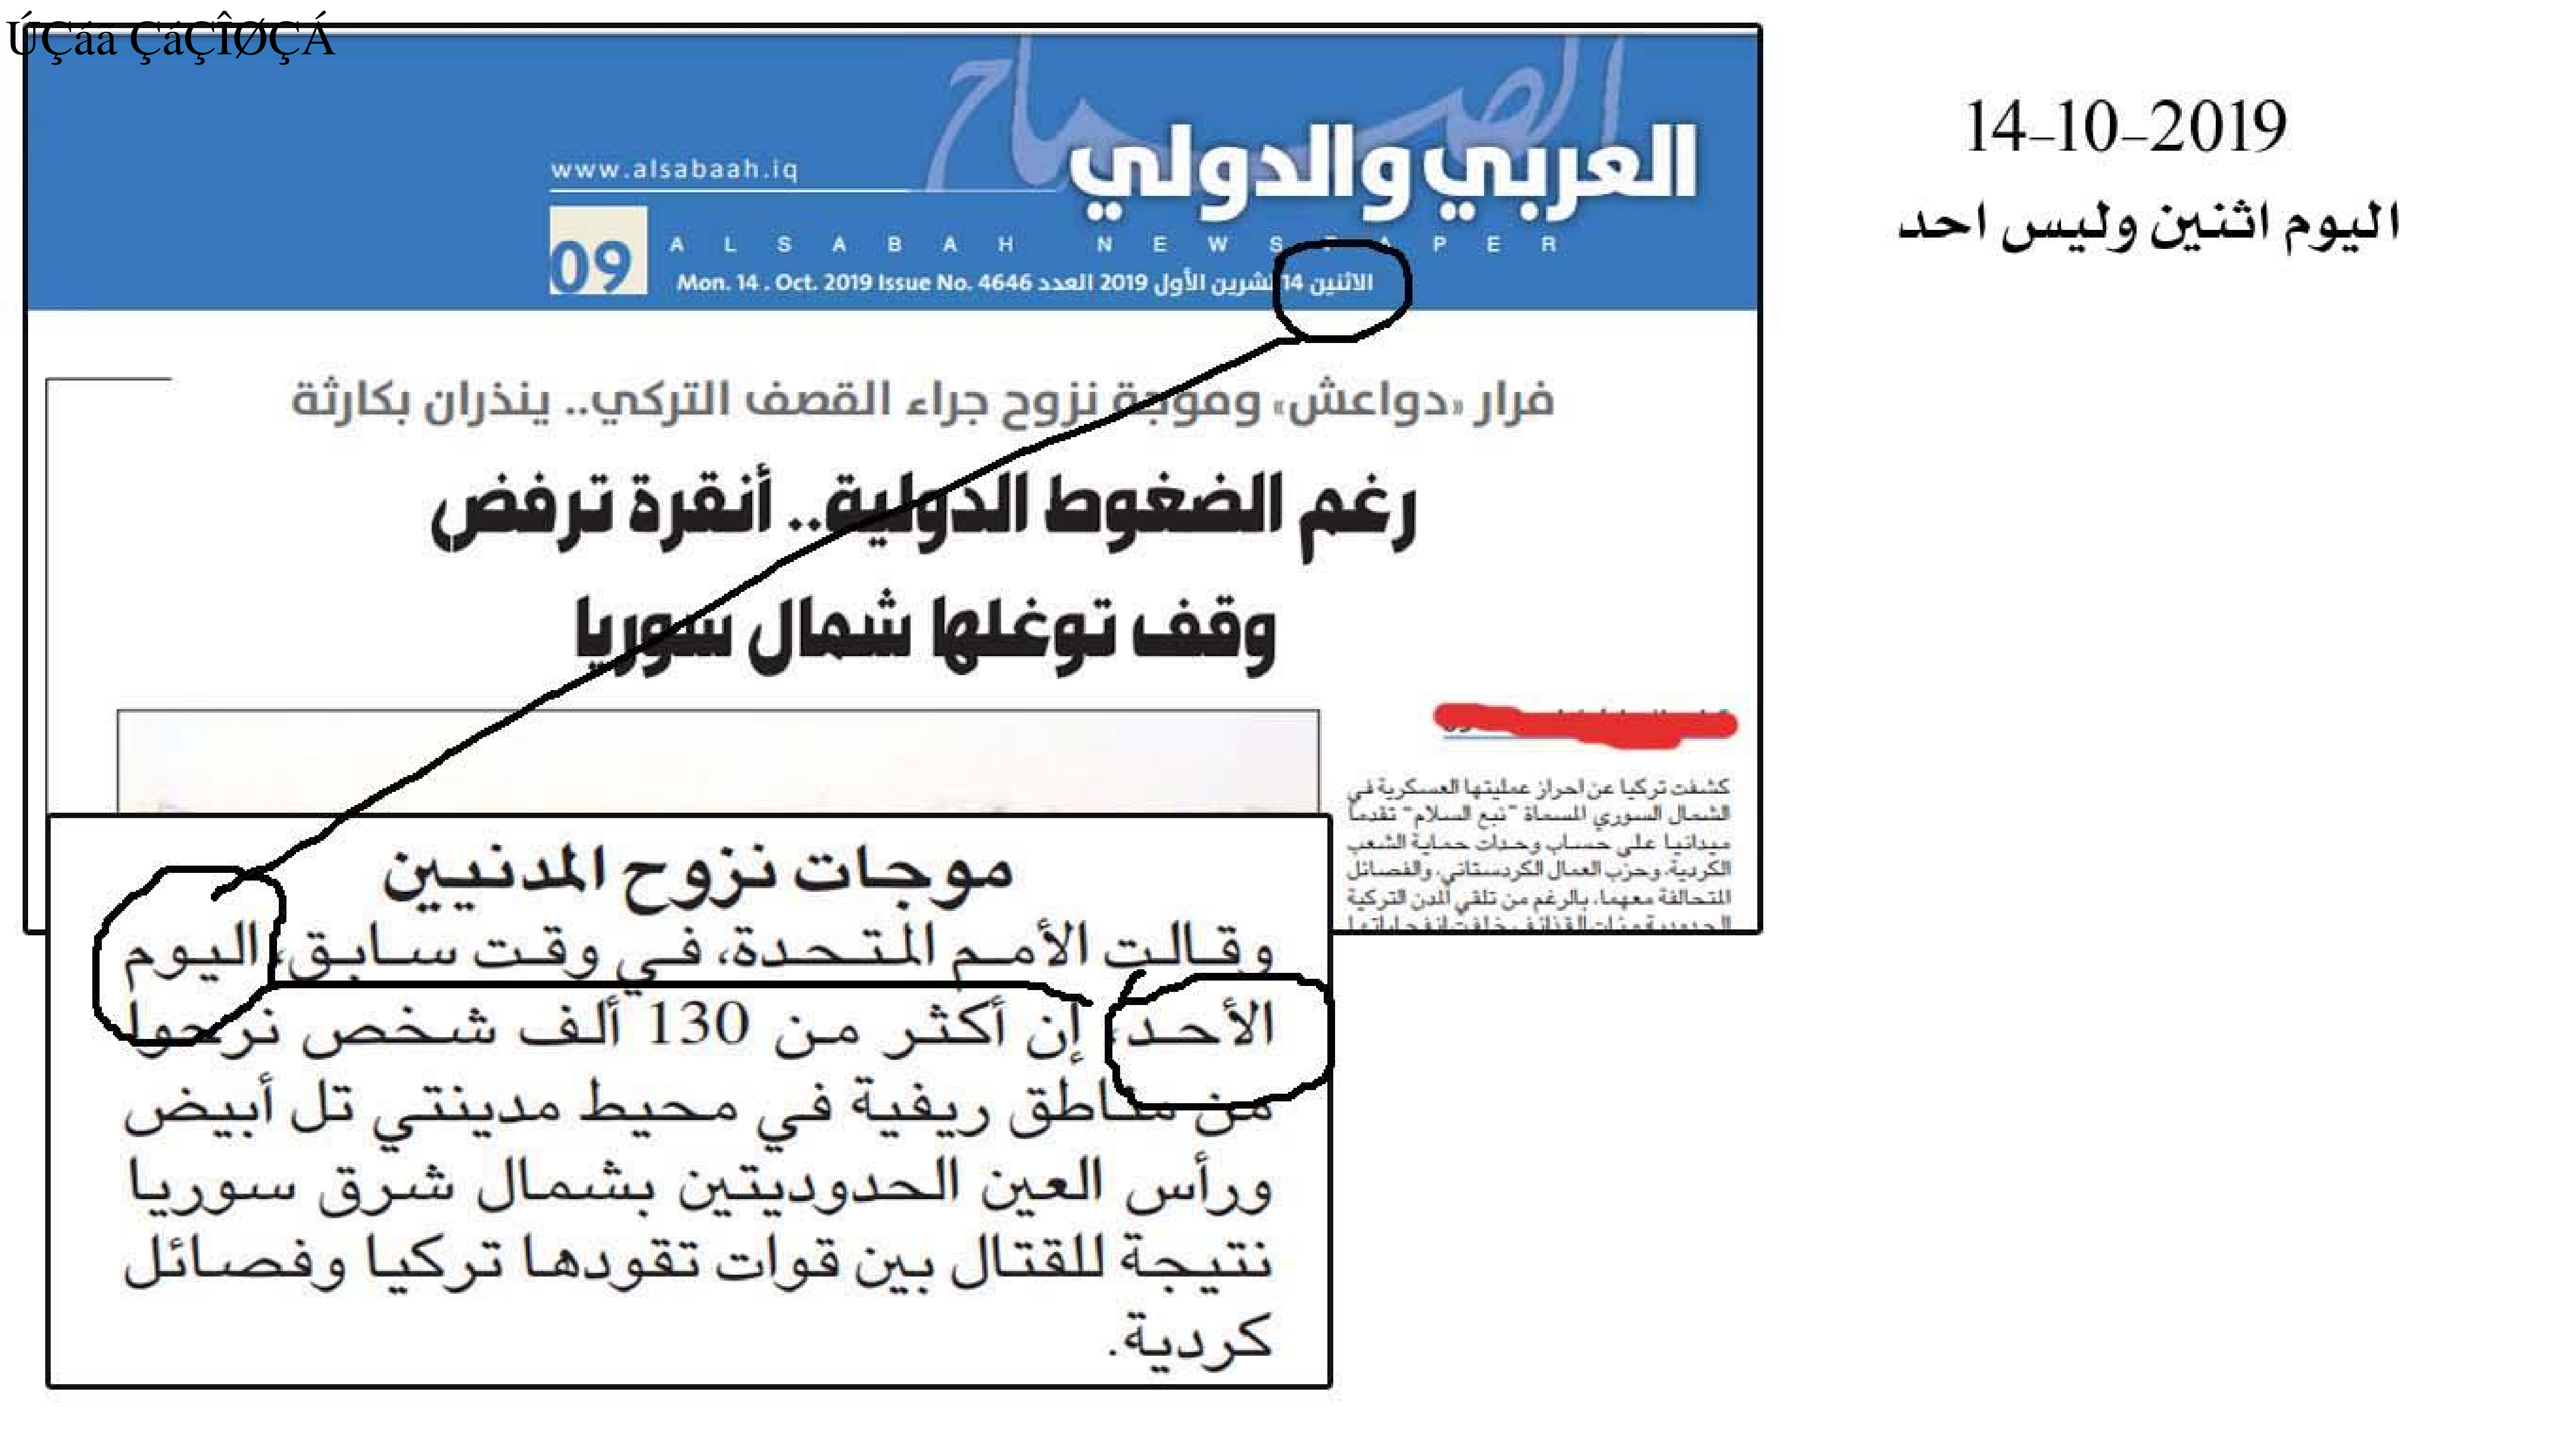 ÚÇáã ÇáÇÎØÇÁ
الصباح
العربي والدولي
www.alsabaah.iq
09
ALSABAH NEWSPAPER
الاثنين 14 تشرين الأول 2019 العدد Mon. 14 . Oct. 2019 Issue No. 4646
فرار «دواعش» وموجة نزوح جراء القصف التركي.. ينذران بكارثة
رغم الضغوط الدولية.. أنقرة ترفض
وقف توغلها شمال سوريا
كشفت تركيا عن احراز عمليتها العسكرية في
الشمال السوري المسماة "نبع السلام" تقدماً
ميدانيا على حساب وحدات حماية الشعب
الكردية، وحزب العمال الكردستاني، والفصائل
المتحالفة معهما، بالرغم من تلقي المدن التركية
موجات نزوح المدنيين
وقالت الأمم المتحدة، في وقت سابق، اليوم
الأحد، إن أكثر من 130 ألف شخص نزحوا
من مناطق ريفية في محيط مدينتي تل أبيض
ورأس العين الحدوديتين بشمال شرق سوريا
نتيجة للقتال بين قوات تقودها تركيا وفصائل
كردية.
14-10-2019
اليوم اثنين وليس احد